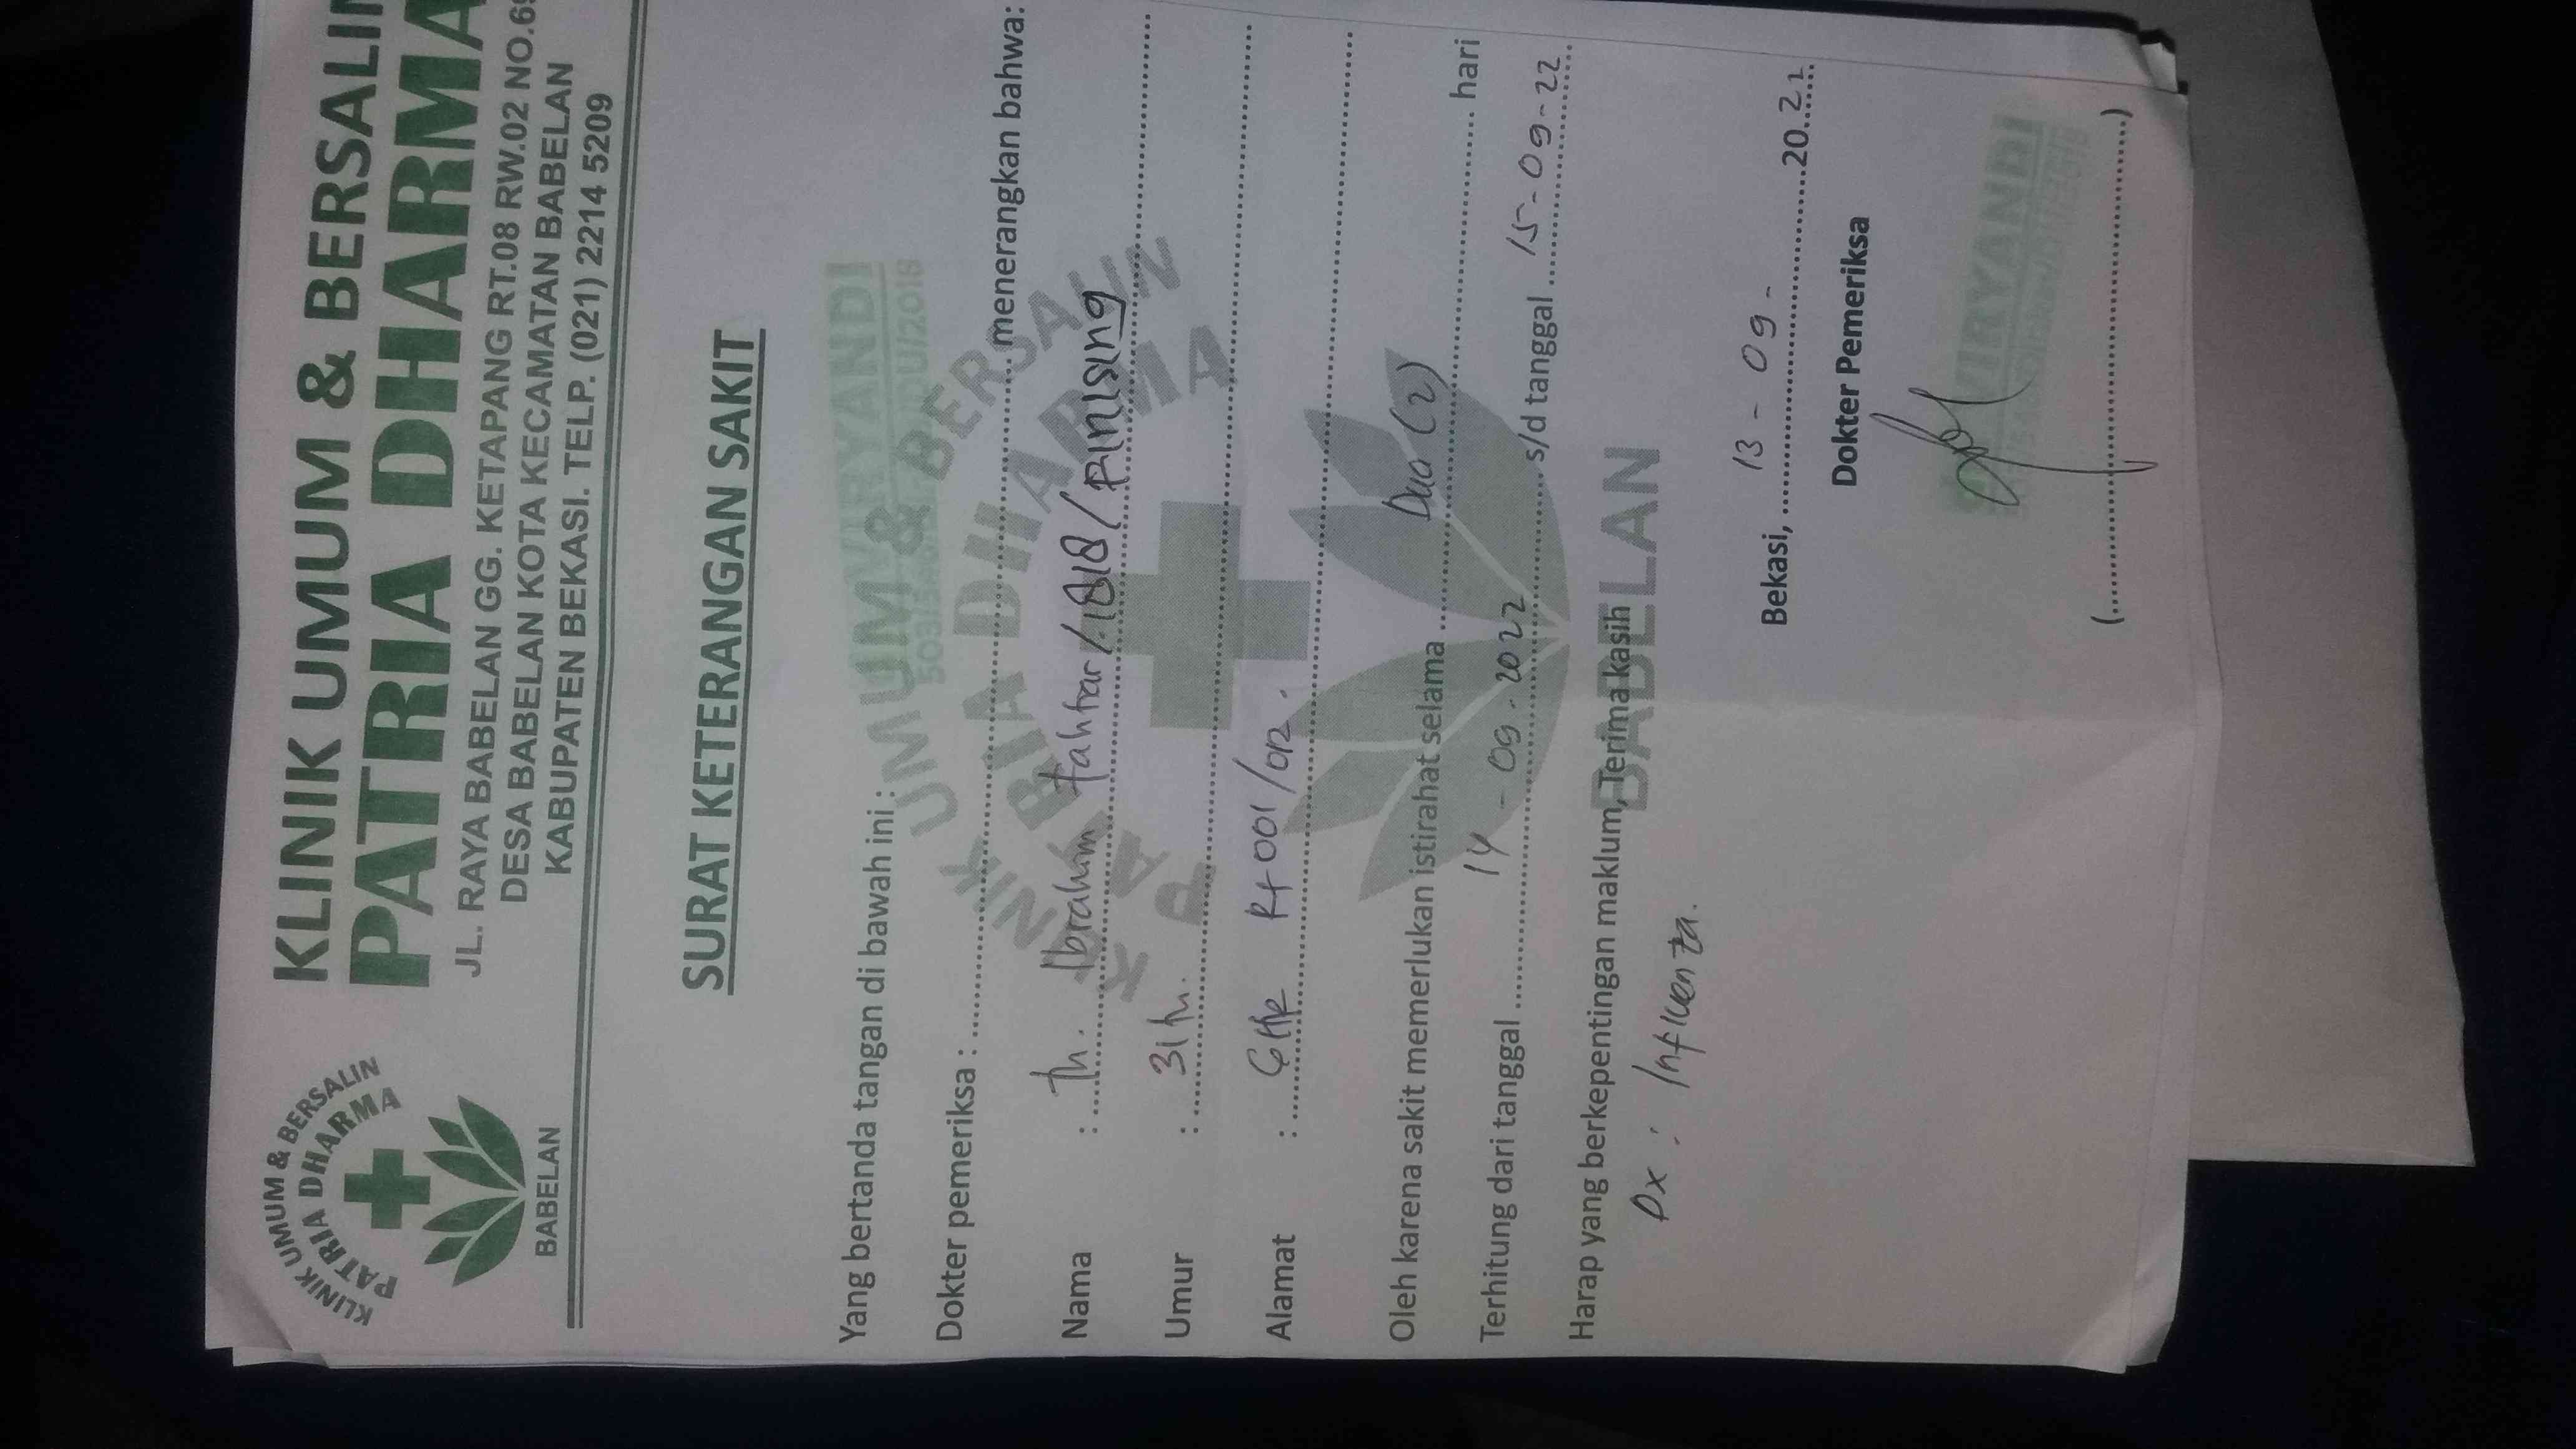 KLINIK UMUM & BERSALIN
PATRIA DHARMA
BABELAN
KLINIK UMUM & BERSALIN
PATRIA DHARMA
JL. RAYA BABELAN GG. KETAPANG RT.08 RW.02 NO.69
DESA BABELAN KOTA KECAMATAN BABELAN
KABUPATEN BEKASI. TELP. (021) 2214 5209
SURAT KETERANGAN SAKIT
Yang bertanda tangan di bawah ini :
Dokter pemeriksa : menerangkan bahwa:
Nama : Tn. Ibrahim
Umur : 31 th.
Alamat : Rt 001/012.
Oleh karena sakit memerlukan istirahat selama Dua (2) hari
Terhitung dari tanggal 14 - 09 - 2022 s/d tanggal 15 - 09 - 22
Harap yang berkepentingan maklum, Terima kasih
Dx : Influenza.
KLINIK UMUM & BERSALIN
PATRIA DHARMA
BABELAN
Bekasi, 13 - 09 - 2022
Dokter Pemeriksa
(....................)